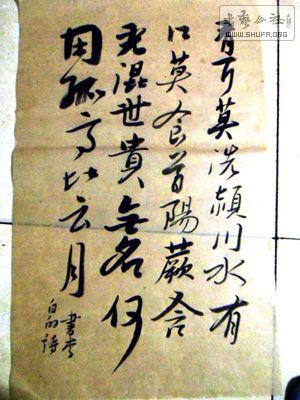 書藝公社
WWW.SHUFA.ORG
有耳莫洗潁川水有
口莫食首陽蕨含
光混世貴無名何
用孤高比云月
書李
白的詩